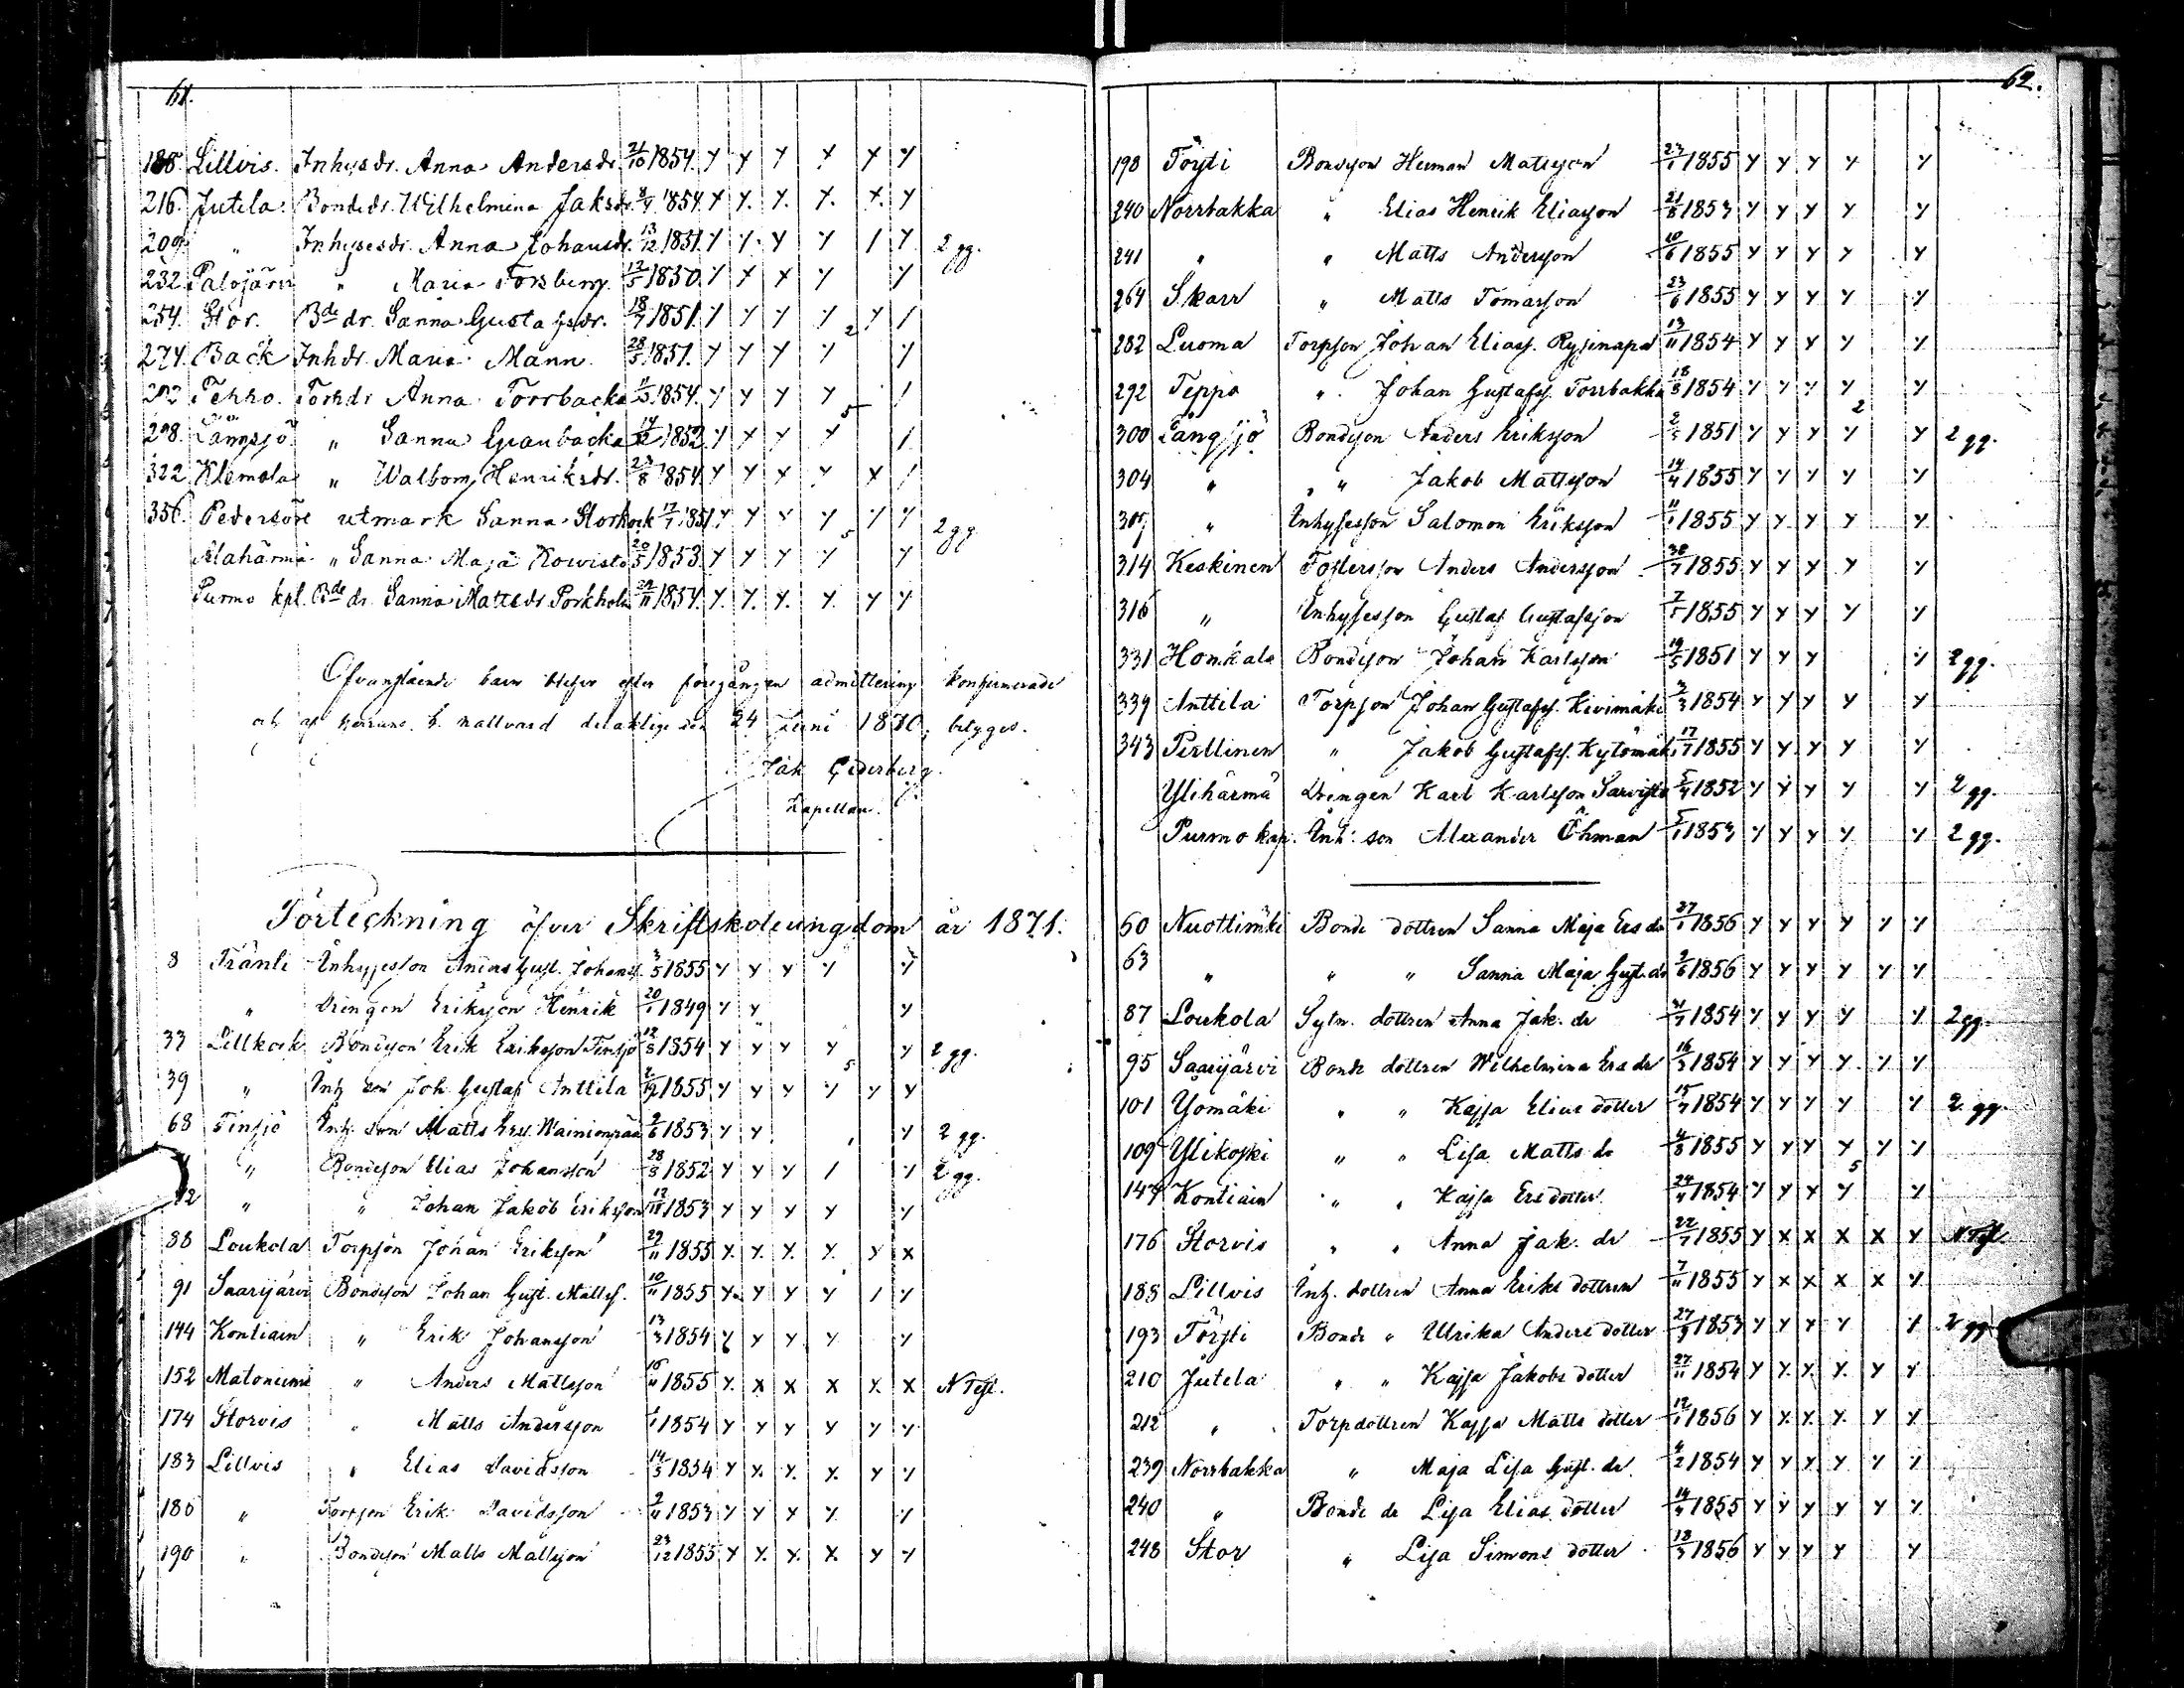 61.
188. Lillvis. Inhysdr. Anna Andersdr. 21/10 1854. y y y y y y
216. Jutila Bondedr. Wilhelmina Jaksdr. 8/4 1854 y y. y. y. y. y
209. " Inhysesdr. Anna Johansdr. 13/12 1851. y y y y / y 2 gg.
232. Palojärvi " Maria Forsberg. 12/5 1850. y y y y y
254. Stor. Bde dr. Sanna Gustafsdr. 18/7 1851. y y y y y /
274. Back Inhdr. Maria Mann 28/5 1851. y y y y 2 y
292 Tehho. Torhdr Anna Torrbacka 11/5 1854. y y y y /
298. Långsjö " Sanna Granbacka 14/12 1852 y y y y 5 /
322 Klemola " Walborg Henriksdr. 23/8 1854. y y y y y /
356. Pedersöre utmark Sanna Storkock 17/7 1851. y y y y y y 2 gg.
Alahärmä " Sanna Maja Kowisto 20/5 1853. y y y y 5 y
Purmo kpl. Bde dr. Sanna Mattsdr Porkholm 24/11 1854. y. y. y. y. y y
Ofvanstående barn blefvo efter föregången admittering konfirmerade
och af Herrans h. nattvard delaktige den 24 Juni 1870, betyges.
Jak Cederberg.
Kapellan.
Förteckning öfver Skriftskoleungdom år 1871.
8 Tränli Inhysesson Anders Gust. Johanss. 3/5 1855 y y y y y
" Drengen Eriksson Henrik 20/1 1849 y y y
33 Lillkock Bondeson Erik Eriksson Finsjö 12/3 1854 y y y y y 2 gg.
39 " Inh. son Joh. Gustaf Anttila 2/12 1855 y y y y 5 y y
68 Finsjö Inh. son Matts Ers. Wainionpää 2/6 1853 y y y 2 gg.
" Bondeson Elias Johansson 28/3 1852 y y y / y 2 gg.
72 " " Johan Jakob Eriksson 12/10 1853 y y y y y
88 Loukola Torpson Johan Eriksson 29/11 1855 y. y. y. y. y x
91 Saarijärvi Bondeson Johan Gust. Mattss. 10/11 1855 y. y y y / y
144 Kontiain " Erik Johansson 13/3 1854 y y y y y
152 Matoniemi " Anders Mattsson 16/11 1855 y. x x x y. x N Test.
174 Storvis " Matts Andersson 1/1 1854 y y y y y y
183 Lillvis " Elias Davidsson 14/5 1854 y y. y. y. y y
186 " Torpson Erik Davidsson 2/4 1853 y y y y y
190 " Bondeson Matts Mattsson 23/12 1855 y y. y. x y y
62.
198 Töysti Bondeson Herman Mattsson 23/1 1855 y y y y y
240 Norrbakka " Elias Henrik Eliasson 21/8 1853 y y y y y
241 " " Matts Andersson 10/6 1855 y y y y y
264 Skarr " Matts Tomasson 23/6 1855 y y y y y
282 Luoma Torpson Johan Eliass. Rysinapa 13/11 1854 y y y y y
292 Teppo " Johan Gustafss. Torrbakka 18/8 1854 y y y y y
300 Långsjö Bondeson Anders Eriksson 2/5 1851 y y y 2 y y 2 gg.
304 " " Jakob Mattsson 14/4 1855 y y y y y
307 " Inhysesson Salomon Eriksson 11/1 1855 y y y y y
314 Keskinen Fosterson Anders Andersson 30/7 1855 y y y y y
316 " Inhysesson Gustaf Gustafsson 7/5 1855 y y y y y
331 Honkala Bondeson Johan Karlsson 19/5 1851 y y y y 2 gg.
339 Anttila Torpson Johan Gustafss. Kivimäki 3/3 1854 y y y y y
343 Perttinen " Jakob Gustafss. Kytömäki 17/7 1855 y y y y y
Ylihärmä Drengen Karl Karlsson Sarvisto 5/4 1852 y y y y y 2 gg.
Purmo kap. Inh. son Alexander Öhman 5/1 1853 y y y y y 2 gg.
60 Nuottimäki Bonde dottren Sanna Maja Ers dr 27/1 1856 y y y y y y
63 " " " Sanna Maja Gust. dr 2/6 1856 y y y y y y
87 Loukola Sytn. dottren Anna Jak. dr 21/7 1854 y y y y y 2 gg.
95 Saarijärvi Bonde dottren Wilhelmina Ers dr 16/3 1854 y y y y y y
101 Yomäki " " Kajsa Elias dotter 15/7 1854 y y y y y 2 gg.
109 Ylikoski " " Lisa Matts dr 4/8 1855 y y y y y y
147 Kontiain " " Kajsa Ers dotter 24/4 1854 y y y 5 y y
176 Storvis " " Anna Jak. dr 22/7 1855 y x x x x y N Test.
188 Lillvis Inh. dottren Anna Eriks dottren 7/11 1855 y x x x x y
193 Töysti Bonde " Ulrika Anders dotter 27/9 1853 y y y y y 2 gg
210 Jutila " " Kajsa Jakobs dotter 27/11 1854 y y. y. y. y y
212 " Torpdottren Kajsa Matts dotter 12/1 1856 y y. y. y. y y
239 Norrbakka " Maja Lisa Gust. dr. 4/2 1854 y y y y y y
240 " Bonde dr Lisa Elias dotter 14/9 1855 y y y y y y
248 Stor " Lisa Simons dotter 18/3 1856 y y y y y